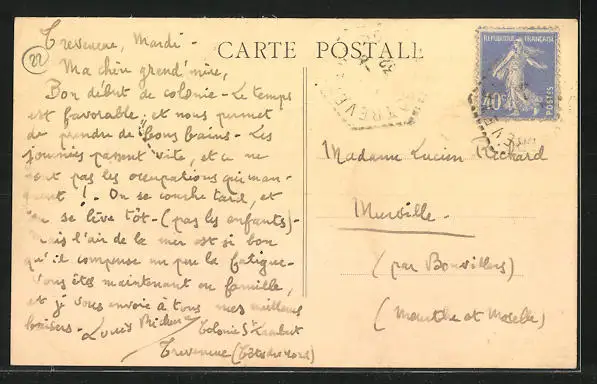 Treveneuc, Mardi -
22
Ma chère grand'mère,
Bon début de colonie - Le temps
est favorable, et nous permet
de prendre de bons bains - Les
journées passent vite, et ce ne
sont pas les occupations qui man-
quent ! - On se couche tard, et
on se lève tôt - (pas les enfants) -
Mais l'air de la mer est si bon
qu'il compense un peu la fatigue -
Vous êtes maintenant en famille,
et je vous envoie à tous mes meilleurs
baisers - Louis Richard
Colonie St
Treveneuc (Côtes du Nord)
CARTE POSTALE
REPUBLIQUE FRANÇAISE
40c
POSTES
Madame Lucien Richard
Murville -
(par Bonvillers)
(Meurthe et Moselle)